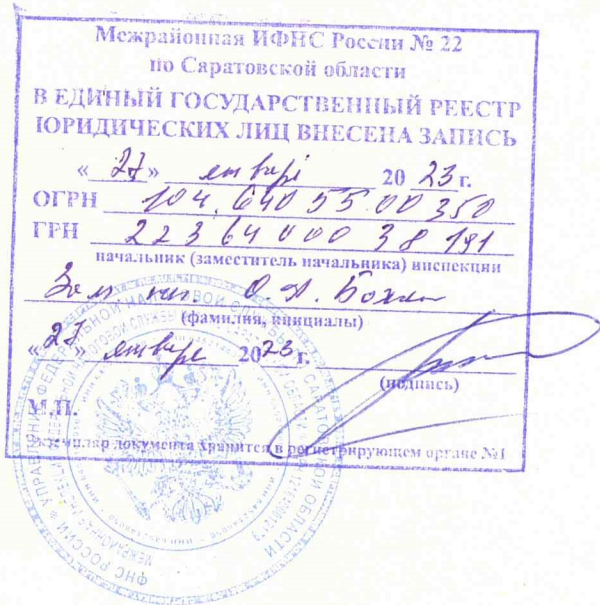 Межрайонная ИФНС России № 22
по Саратовской области
В ЕДИНЫЙ ГОСУДАРСТВЕННЫЙ РЕЕСТР
ЮРИДИЧЕСКИХ ЛИЦ ВНЕСЕНА ЗАПИСЬ
«27» января 2023 г.
ОГРН 1046405500350
ГРН 2236400038191
начальник (заместитель начальника) инспекции
Зам. нач. О.А.
(фамилия, инициалы)
«27» января 2023 г.
(подпись)
М.П.
Экземпляр документа хранится в регистрирующем органе №1